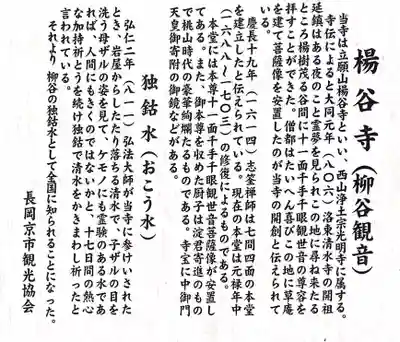 楊谷寺（柳谷観音）
当寺は立願山楊谷寺といい、西山浄土宗光明寺に属する。
寺伝によると大同元年（八〇六）洛東清水寺の開祖
延鎮はある夜のこと霊夢を見られこの地に尋ね来たる
ところ楊樹茂る谷間に十一面千手千眼観世音の尊容を
拝すことができた。僧都はたいへん喜びこの地に草庵
を建て菩薩像を安置したのが当寺の開創と伝えられて
いる。
慶長十九年（一六一四）志筌禅師は七間四面の本堂
を建立したと伝えられている。現在の本堂は元禄年中
（一六八八〜一七〇三）の修復によるものである。
本堂には本尊十一面千手千眼観世音菩薩像が安置し
てある。また、御本尊を収めた厨子は淀君寄進のもの
で桃山時代の豪華絢爛たるものである。寺宝に中御門
天皇御寄附の御鏡などがある。
独鈷水（おこう水）
弘仁二年（八一一）弘法大師が当寺に参けいされた
とき、岩屋からしたたり落ちる清水で、子ザルの目を
洗う母ザルの姿を見て、ケモノにも霊験のある水であ
れば、人間にもきくのではないかと、十七日間の熱心
な加持祈とうを続け独鈷で清水をかきまわし祈ったと
言われている。
それより、柳谷の独鈷水として全国に知られることになった。
長岡京市観光協会